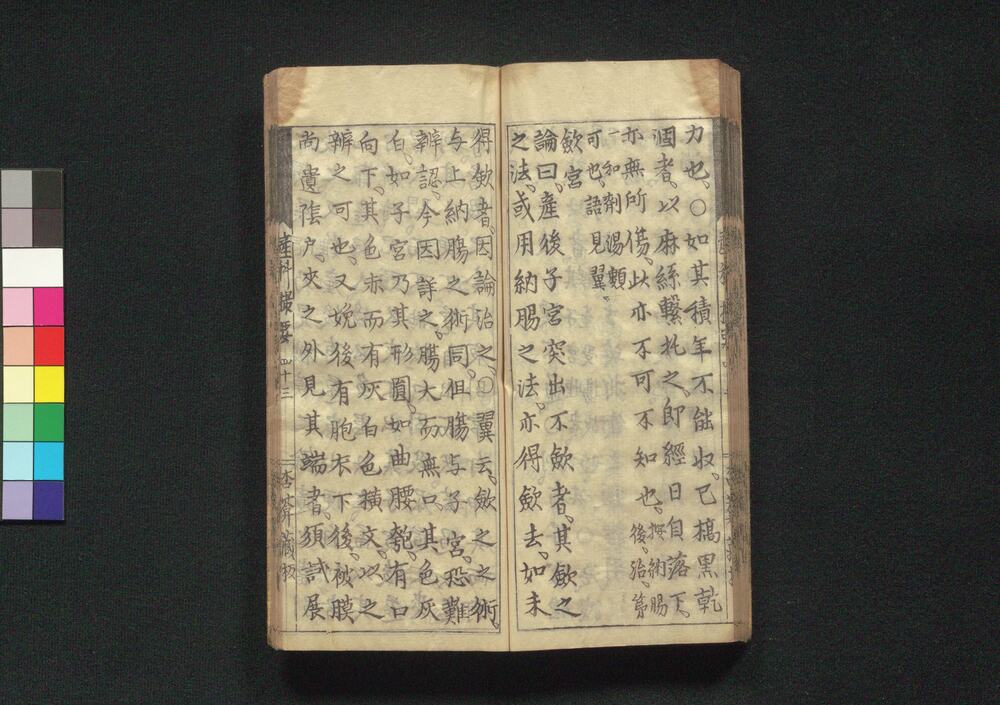 力也。○如其積年不能収。已槁黒乾
涸者。以麻絲繫扎之。即經日自落下。
亦無所傷。以亦不可不知也。按納腸
後。治第
一和劑湯頗
可也。語見翼。
斂宮
論曰。産後子宮突出不斂者。其斂之
之法。或用納腸之法。亦得斂去。如未
得斂者。因論治之。○翼云。斂之之術。
与上納腸之術同。但腸与子宮。恐難
辨認。今因詳之。腸大而無口。其色灰
白。如子宮乃其形圓。如曲腰匏。有口
向下。其色赤而有灰白色横文。以之
辨之可也。又娩後有胞衣下後。被膜
尚遺陰戸。夾之外見其端者。須試展
産科撮要 四十三 杏齋藏板